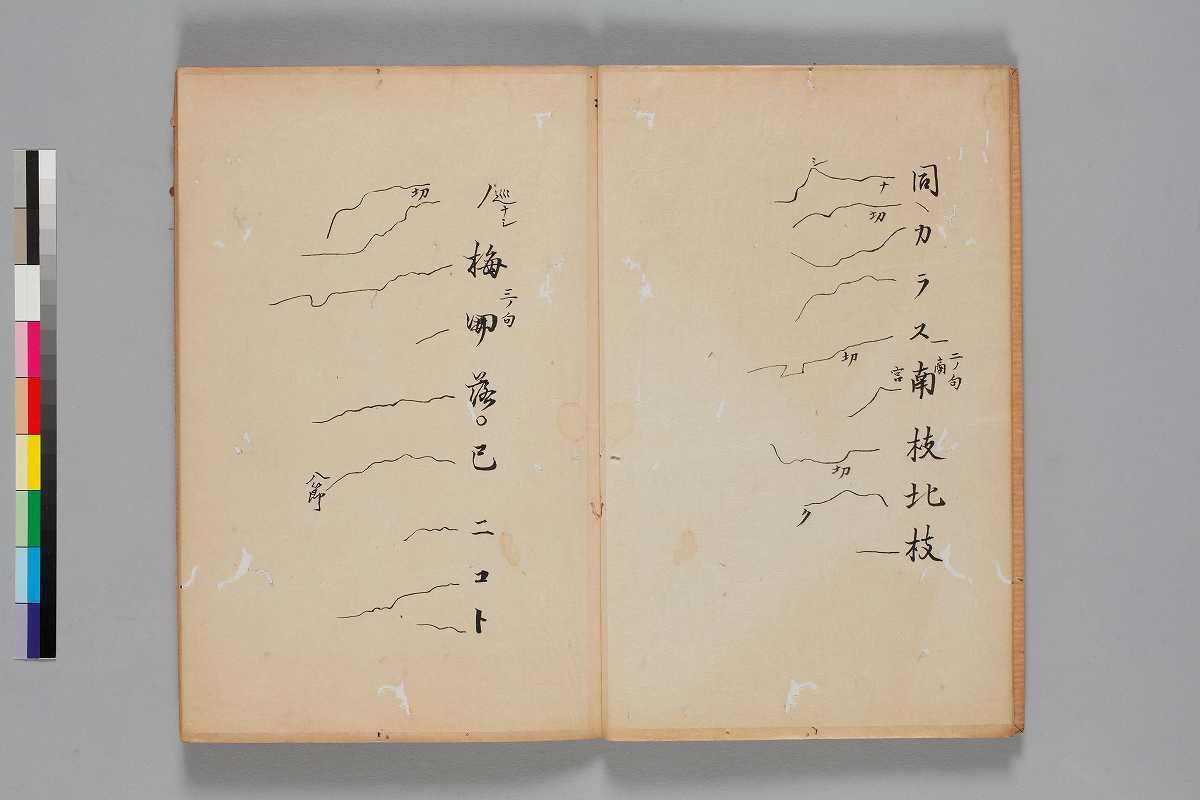 同カラス南枝北枝
二ノ句
南
宮
ナ
シ
切
切
切
ク
巡ナシ
梅開落已ニコト
三ノ句
切
八節